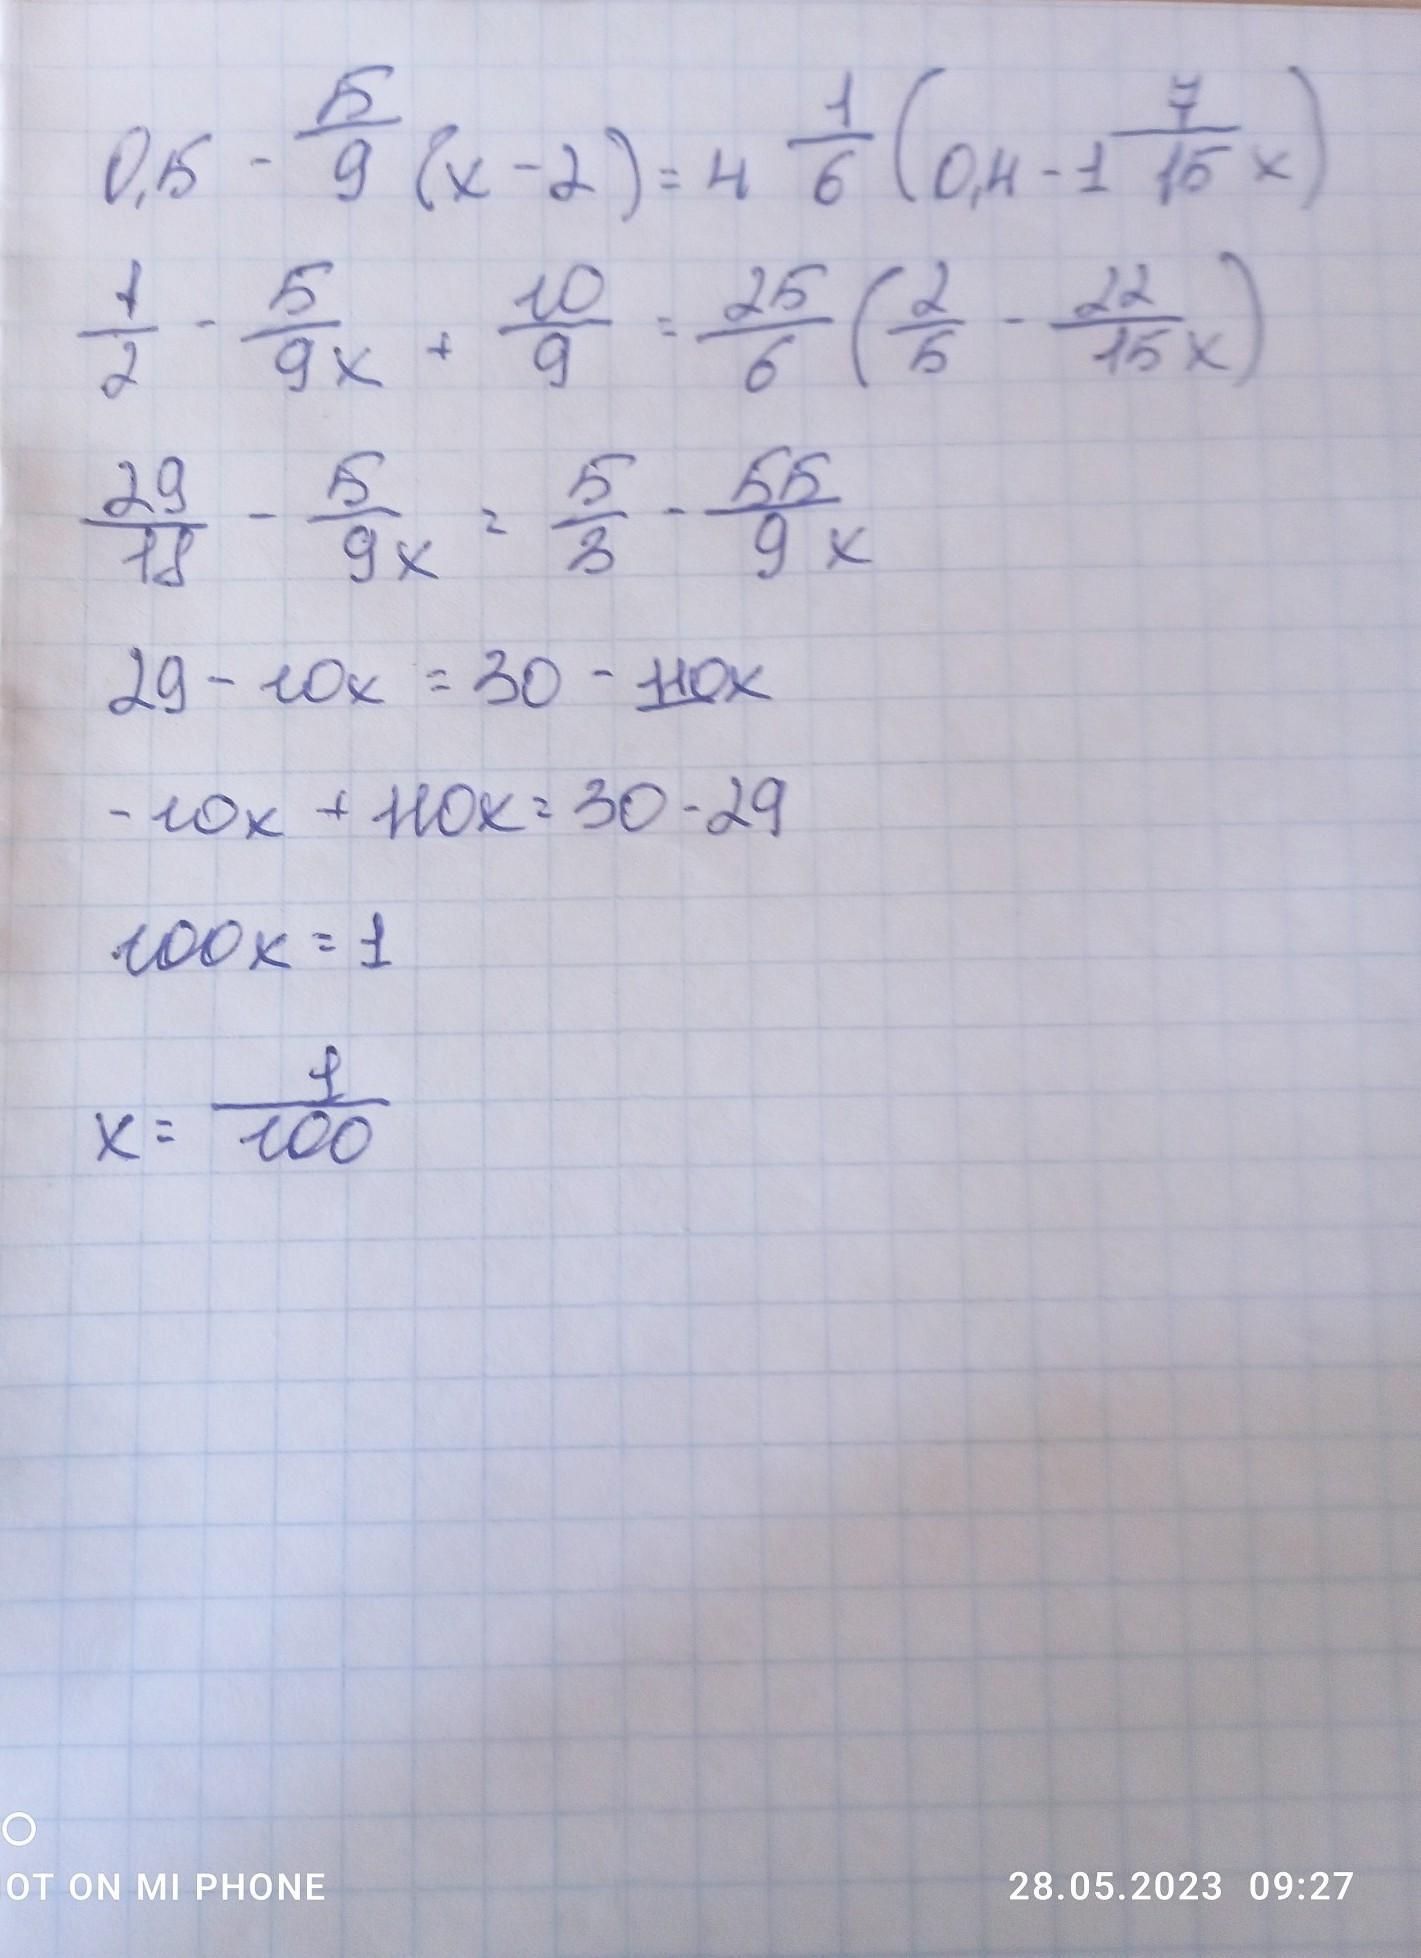 0,5 - 5/9 (x - 2) = 4 1/6 (0,4 - 1 7/15 x)
1/2 - 5/9x + 10/9 = 25/6 (2/5 - 22/15 x)
29/18 - 5/9x = 5/3 - 55/9 x
29 - 10x = 30 - 110x
-10x + 110x = 30 - 29
100x = 1
x = 1/100
OT ON MI PHONE
28.05.2023 09:27